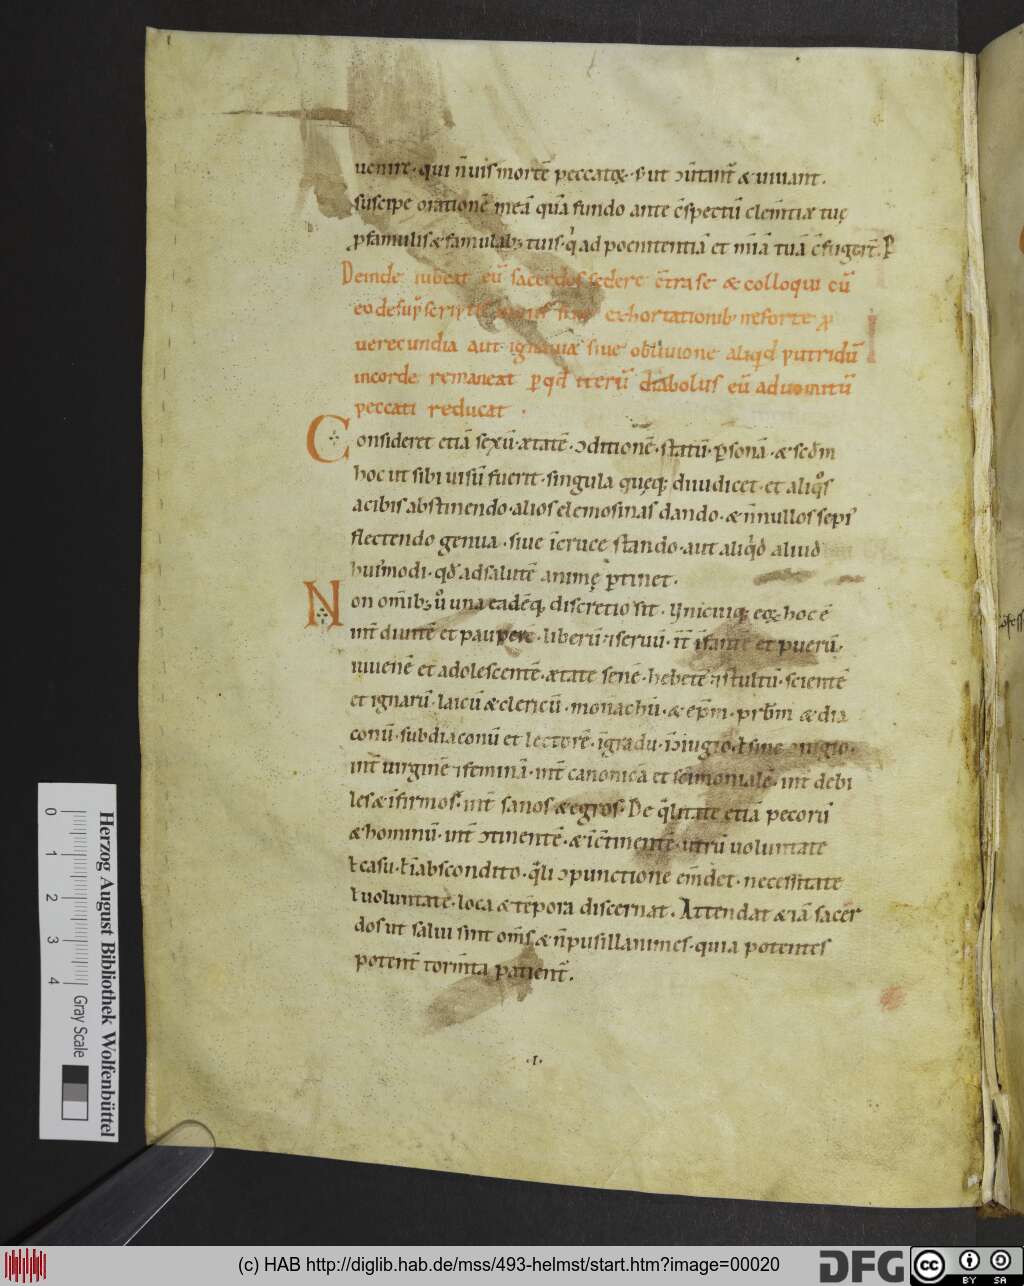 uenire· qui n̄ uis mortē peccatoꝝ· s; ut ↄ̄uītant᷑ & uiuant.
suscipe orationē meā quā fundo ante c̄spectū clem̄tiæ tuę
ꝓ famulis & famulab; tuis· q̇ ad poenitentiā et m̄iā tuā c̄fuger̄t. P̄
Deinde iubeat eū sacerdos sedere c̄tra se & colloqui cū
eo de sup̄scriptis exhortationib; ne forte ꝓ
uerecundia aut ignauia siue obliuione aliqd̄ putridū
in corde remaneat ꝑ qd̄ iterū diabolus eū ad uomitū
peccati reducat ·
Consideret etiā sexū· ætatē· ↄditionē· statū· ꝑsonā· & scdm̄
hoc ut sibi uisū fuerit· singula quęq; diiudicet· et aliq̊s
a cibis abstinendo· alios elemosinas dando· & n̄nullos sepi᷒
flectendo genua· siue ī cruce stando· aut aliq̇d aliud
hui᷒modi· qd̄ ad salutē animę ꝑtinet·
Non om̄ib; ů una eadēq; discretio sit· Vnicuiq; eoꝝ hoc ē
int̄ diuitē et pauperē· liberū ⁊ seruū· int̄ īfantē et puerū·
iuuenē et adolescentē· ætate senē· hebetē ⁊ stultū· scientē
et ignarū· laicū & clericū· monachū· & ep̄m· prb̄m & dia
conū· subdiaconū et lectorē· ī gradu· ī ↄiugio· ł sine ↄiugio·
int̄ uirginē ⁊ feminā· int̄ canonicā et sc̄imonialē· int̄ debi
les & īfirmos· int̄ sanos & egros· De q̄litate etiā pecorū
& hominū· int̄ ↄtinentē· & īc̄tinentē· utrū uoluntate
ł casu· ł ī abscondito· q̄li ↄpunctione em̄det· necessitate
ł uoluntate· loca & tēpora discernat. Attendat & iā sacer
dos ut salui sint om̄s, & n̄ pusillanimes· quia potentes
potent̄ torm̄ta patient᷑.
·I·
Herzog August Bibliothek Wolfenbüttel
0 1 2 3 4 Gray Scale
(c) HAB http://diglib.hab.de/mss/493-helmst/start.htm?image=00020
DFG
cc BY SA